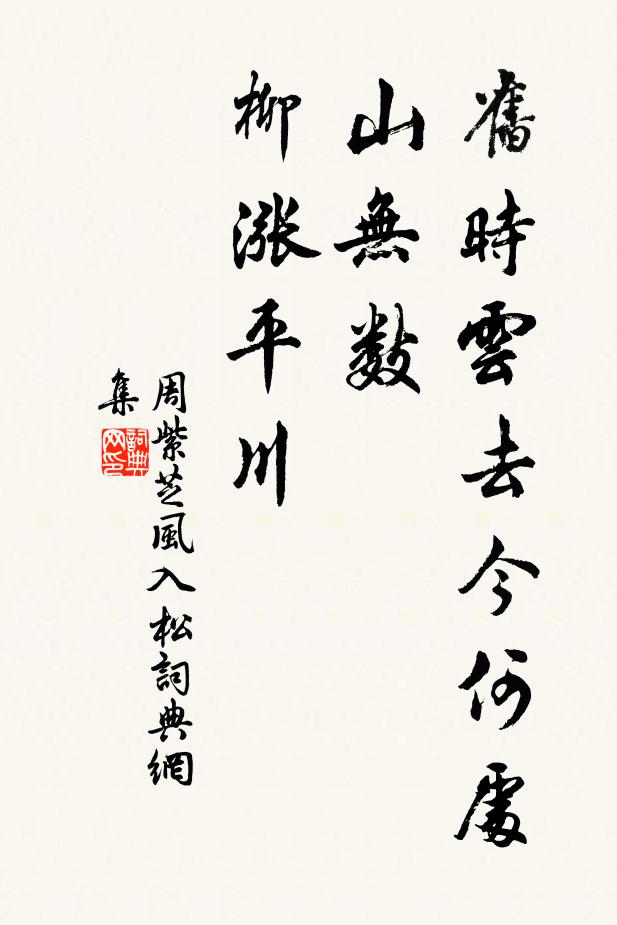 舊時雲去今何處
山無數
柳漲平川
周紫芝風入松詞典網
集
詞典
网印